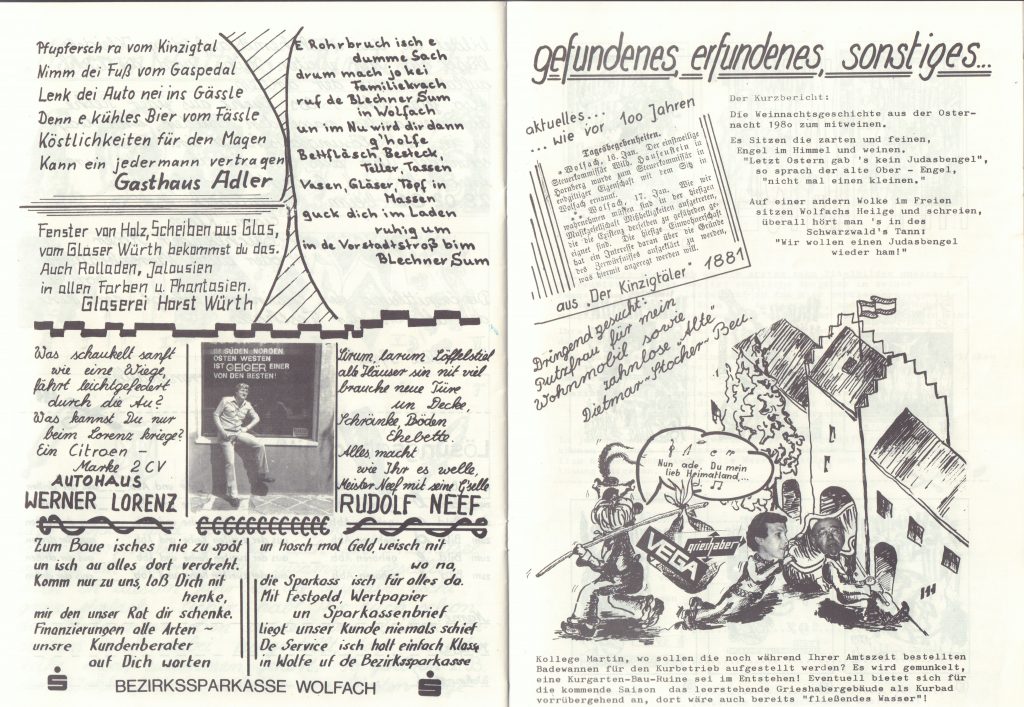 Pfupfersch ra vom Kinzigtal
Nimm dei Fuß vom Gaspedal
Lenk dei Auto nei ins Gässle
Denn e kühles Bier vom Fässle
Köstlichkeiten für den Magen
Kann ein jedermann vertragen
Gasthaus Adler
E Rohrbruch isch e
dumme Sach
drum mach jo kei
Familiekrach
ruf de Blechner Sum
in Wolfach
un im Nu wird dir dann
g'holfe
Bettfläsch, Besteck,
Teller, Tassen
Vasen, Gläser, Töpf in
Massen
guck dich im Laden
ruhig um
in de Vorstadtstroß bim
Blechner Sum
Fenster von Holz, Scheiben aus Glas,
vom Glaser Würth bekommst du das.
Auch Rolladen, Jalousien
in allen Farben u. Phantasien.
Glaserei Horst Würth
Was schaukelt sanft
wie eine Wiege,
fährt leichtgefedert
durch die Au?
Was kannst Du nur
beim Lorenz kriege?
Ein Citroen -
Marke 2 CV
AUTOHAUS
WERNER LORENZ
IM SÜDEN NORDEN
OSTEN WESTEN
IST GEIGER EINER
VON DEN BESTEN!
Lirum, larum Löffelstiel
alte Häuser sin nit viel
brauche neue Türe
un Decke,
Schränke, Böden
Ehebette.
Alles, macht
wie Ihr es welle,
Meister Neef mit seine G'selle
RUDOLF NEEF
Zum Baue isches nie zu spät
un isch au alles dort verdreht.
Komm nur zu uns, loß Dich nit
henke,
mir den unser Rat dir schenke.
Finanzierungen alle Arten ~
unsre Kundenberater
auf Dich warten
un hosch mol Geld, weisch nit
wo na,
die Sparkass isch für alles da.
Mit Festgeld, Wertpapier
un Sparkassenbrief
liegt unser Kunde niemals schief
De Service isch halt einfach Klass
in Wolfe uf de Bezirkssparkasse
BEZIRKSSPARKASSE WOLFACH
gefundenes, erfundenes, sonstiges...
aktuelles...
... wie vor 100 Jahren
Tagesbegebenheiten.
* Wolfach, 16. Jan. Der einstweilige
Steuerkommissär Wilh. Haufenstein in
Hornberg wurde zum Steuerkommissär in
endgiltiger Eigenschaft mit dem Sitz in
Wolfach ernannt.
* Wolfach, 17. Jan. Wie wir
wahrnehmen mußten sind in der hiesigen
Musikgesellschaft Mißhelligkeiten aufgetreten,
die die Existenz derselben zu gefährden ge-
eignet sind. Die hiesige Einwohnerschaft
hat ein Interesse daran über die Gründe
des Zerwürfnisses aufgeklärt zu werden,
was hiermit angeregt werden will.
aus „Der Kinzigtäler" 1881
Der Kurzbericht:
Die Weinnachtsgeschichte aus der Oster-
nacht 1980 zum mitweinen.
Es Sitzen die zarten und feinen,
Engel im Himmel und weinen.
"Letzt Ostern gab 's kein Judasbengel",
so sprach der alte Ober - Engel,
"nicht mal einen kleinen."
Auf einer andern Wolke im Freien
sitzen Wolfachs Heilge und schreien,
überall hört man 's in des
Schwarzwald's Tann:
"Wir wollen einen Judasbengel
wieder ham!"
Dringend gesucht:
Putzfrau für mein
Wohnmobil sowie
zahnlose „Alte"
Dietmar-Stocher-Beu.
Nun ade, Du mein
lieb Heimatland,...
VEGA
grieshaber
Kollege Martin, wo sollen die noch während Ihrer Amtszeit bestellten
Badewannen für den Kurbetrieb aufgestellt werden? Es wird gemunkelt,
eine Kurgarten-Bau-Ruine sei im Entstehen! Eventuell bietet sich für
die kommende Saison das leerstehende Grieshabergebäude als Kurbad
vorrübergehend an, dort wäre auch bereits "fließendes Wasser"!